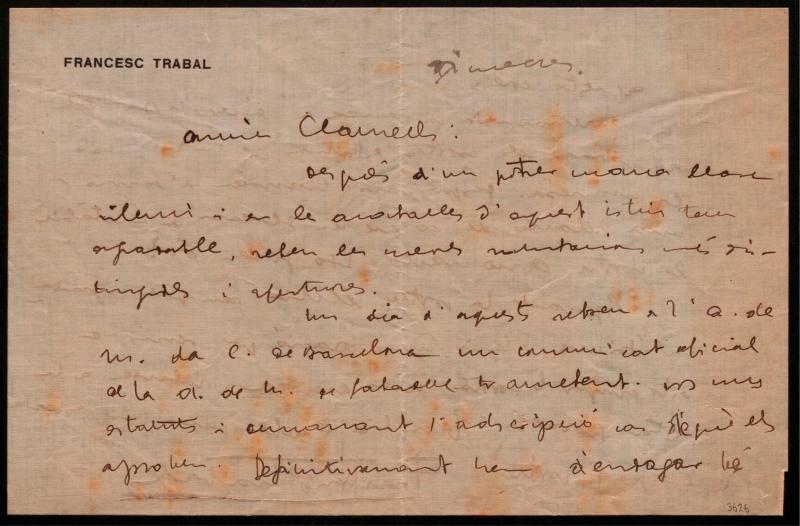 FRANCESC TRABAL
Dimecres.
amic Clarnells:
Després d'un potser massa llarg
silenci i en les acaballes d'aquest istiu tan
agradable, rebeu les meves salutacions més dis-
tingides i afectuoses.
Un dia d'aquests rebreu a l'A. de
M. de C. de Barcelona un comunicat oficial
de la A. de M. de Sabadell trametent-vos uns
estatuts i demanant l'adscripció
aproben. Definitivament hem d'engegar bé
3626